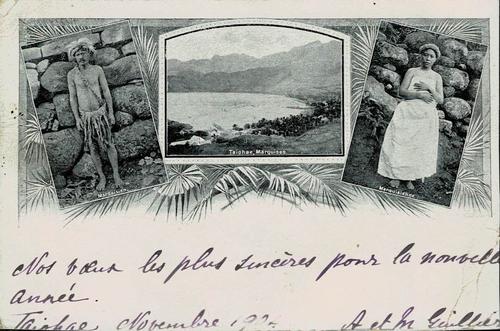 Taiohae, Marquises
Nos vœux les plus sincères pour la nouvelle
année.
Taiohae Novembre
A et M